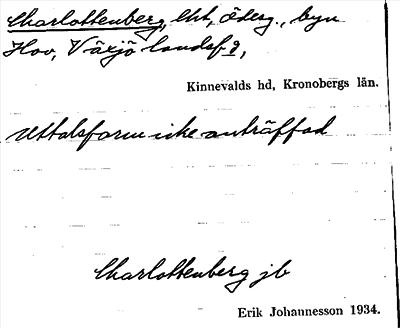 Charlottenberg, lht, ödeg., byn
Hov, Växjö landsf.,
Kinnevalds hd, Kronobergs län.
Uttalsform icke anträffad
Charlottenberg jb
Erik Johannesson 1934.